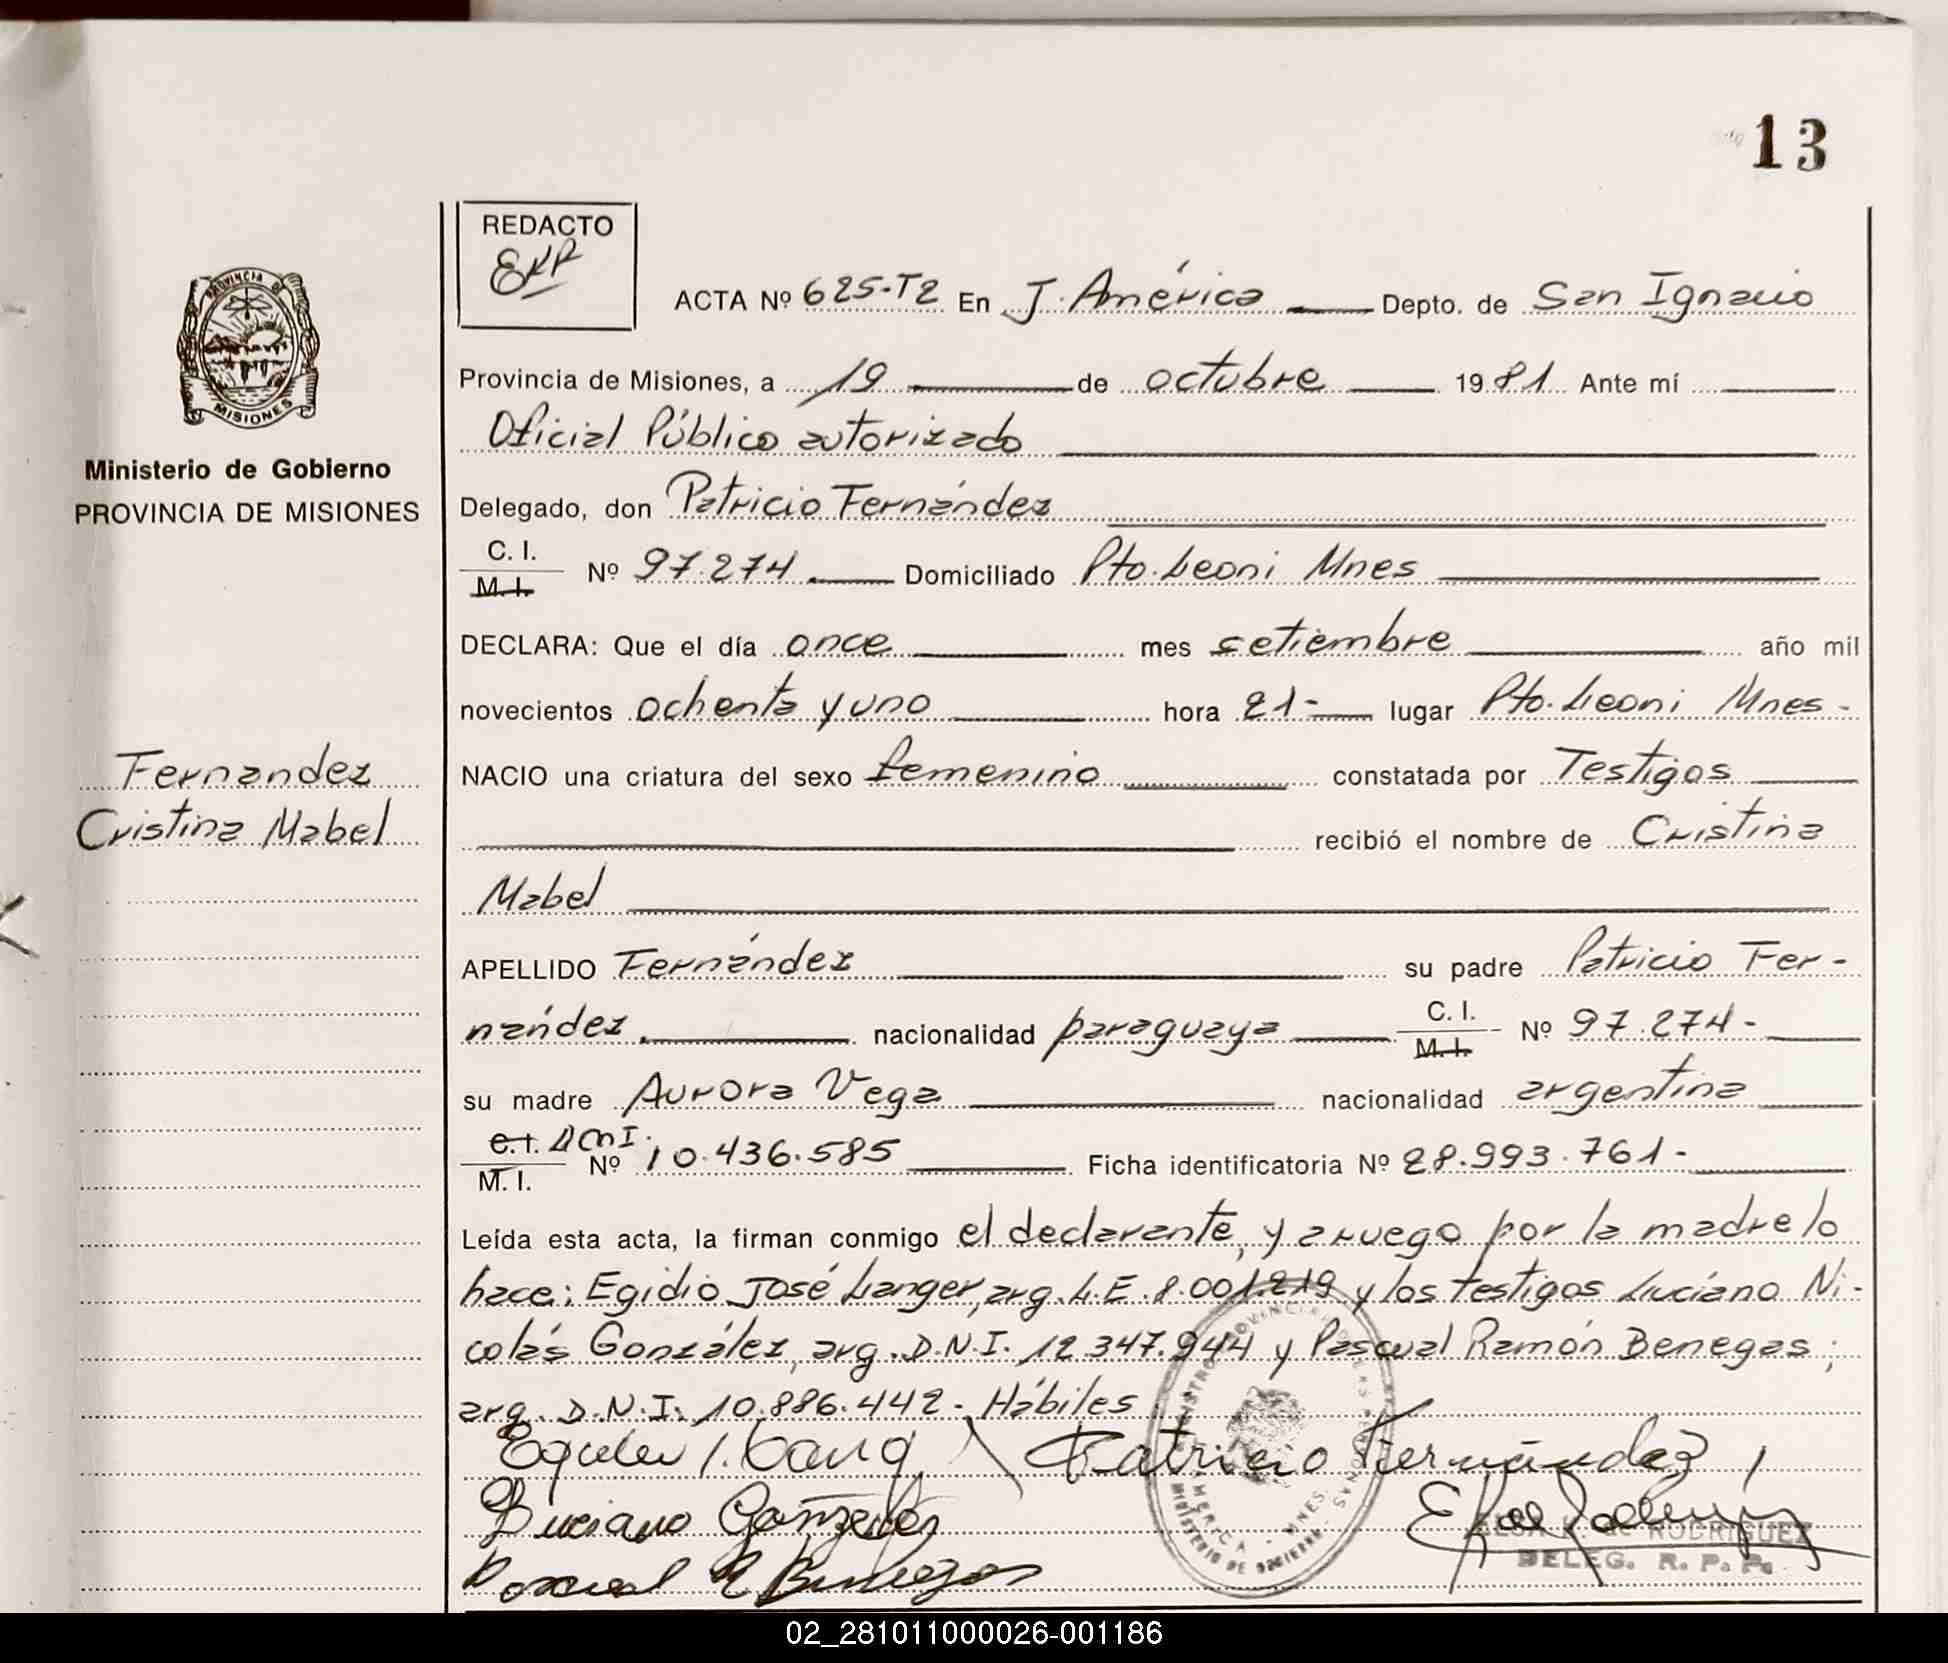 13
REDACTO
ACTA Nº 625-T2 En J. América Depto. de San Ignacio
Provincia de Misiones, a 19 de octubre 1981 Ante mí
Oficial Público autorizado
Delegado, don Patricio Fernández
C. I.
M. I. Nº 97.274 Domiciliado Pto. Leoni Mnes
DECLARA: Que el día once mes setiembre año mil
novecientos ochenta y uno hora 21- lugar Pto. Leoni Mnes -
NACIO una criatura del sexo femenino constatada por Testigos
recibió el nombre de Cristina
Mabel
APELLIDO Fernández su padre Patricio Fer-
nández. nacionalidad paraguaya C. I. M. I. Nº 97.274-
su madre Aurora Vega nacionalidad argentina
C.I. DNI.
M. I. Nº 10.436.585 Ficha identificatoria Nº 28.993.761-
Leída esta acta, la firman conmigo el declarante, y a ruego por la madre lo
hace: Egidio José Langer, arg. L.E. 8.001.219 y los testigos Luciano Ni-
colás González, arg. D.N.I. 12.347.944 y Pascual Ramón Benegas;
arg. D.N.I. 10.886.442- Hábiles
Patricio Fernández
Luciano González
Pascual R Benegas
RODRIGUEZ
DELEG. R. P. P.
PROVINCIA DE
MISIONES
Ministerio de Gobierno
PROVINCIA DE MISIONES
Fernandez
Cristina Mabel
MINISTERIO DE GOBIERNO
02_281011000026-001186